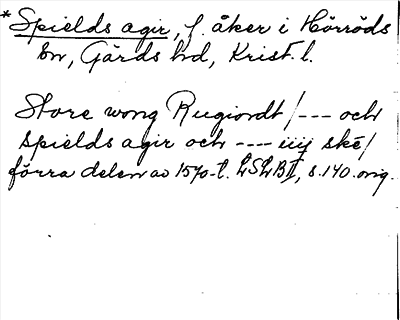 * Spields agir, f. åker i Hörröds
sn, Gärds hd, Krist. l.
Store wong Rugiordt /--- och
spields agir och ---- iiij ské/
förra delen av 1570-t. LSLB II, s. 140. orig.